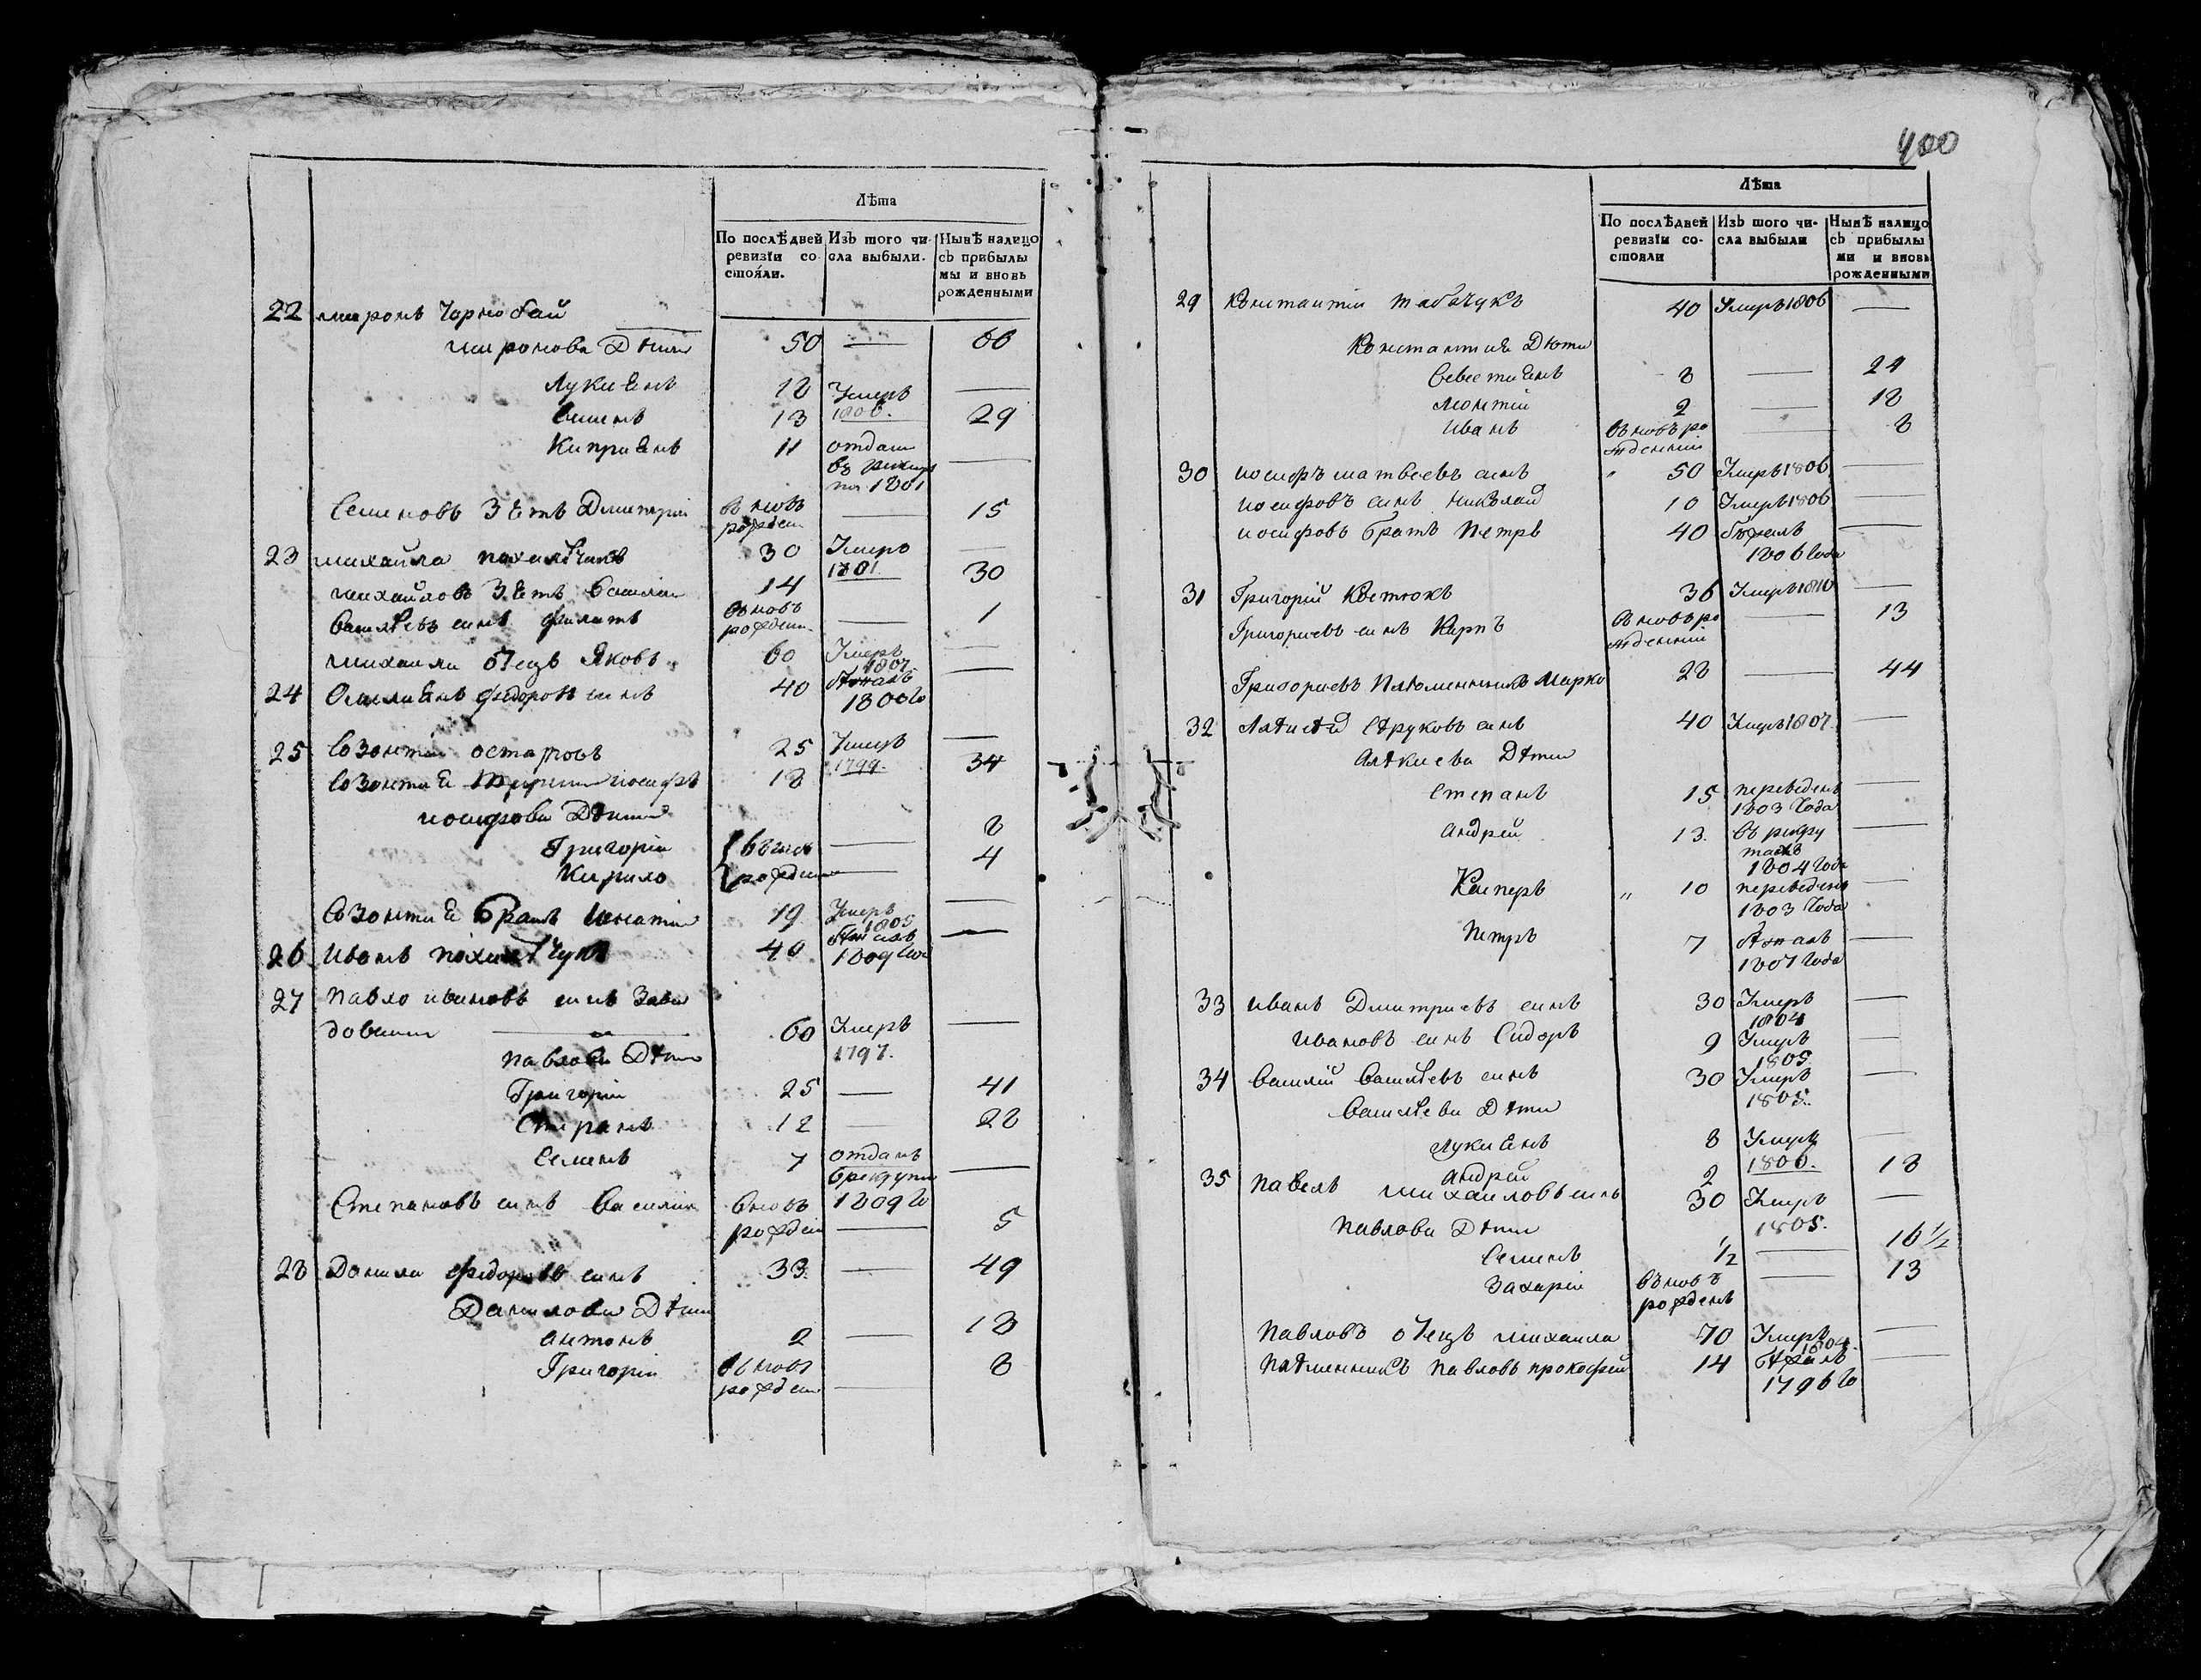 Лѣта
По послѣдней ревизіи состоя́ли.
Изъ того числа выбыли.
Нынѣ налицо съ прибылымы и вновь рожденными
22 миронъ Чорнобай
миронова Дѣти 50 — 66
Лукиянъ 18 Умеръ 1806. —
Семенъ 13 — 29
Киприянъ 11 отдан въ рекруты 1801 —
Семеновъ Зять Дмитрий вновь рожден — 15
23 михайла 30 Умеръ 1801. —
михайловъ Зять Василий 14 30
Васильевъ синъ Филипъ вновъ рожден — 1
михайли отецъ Яковъ 60 Умеръ 1807 —
24 Омелиянъ федоровъ синъ 40 1800го —
25 Созонтий остаповъ 25 Умеръ 1799. —
Созонтия иосифъ 18 34
иосифови Дѣти
Григорій вновь — 8
Кирило рожден — 4
Созонтия Братъ Игнатій 19 Умеръ 1805 —
26 Иванъ 40 1809 года —
27 Павло ивановъ синъ Зави
довский 60 Умеръ 1797. —
Павлови Дѣти
Григорій 25 — 41
Степанъ 12 — 28
Семенъ 7 отданъ в рекруты 1809го —
Степановъ синъ Василий вновъ рожден — 5
28 Данила федоровъ синъ 33 — 49
Данилови Дѣти
антонъ 2 — 18
Григорій вновъ рожден — 8
400
Лѣта
По послѣдней ревизіи состояли
Изъ того числа выбыли
Нынѣ налицо съ прибылыми и вновь рожденными
29 Константій табачукъ 40 Умеръ 1806 —
Константия Дѣти
Севестиянъ 8 — 24
Леонтій 2 — 18
иванъ вновъ рожденний — 8
30 иосифъ матвеевъ синъ 50 Умеръ 1806 —
иосифовъ синъ Николай 10 Умеръ 1806 —
иосифовъ братъ Петръ 40 бѣжалъ 1806 года —
31 Григорій Костюкъ 36 Умеръ 1810 —
Григориевъ синъ Карпъ вновъ рожденний — 13
Григориевъ Племенникъ Марко 28 — 44
32 синъ 40 Умеръ 1807. —
Дѣти
Степанъ 15 переведенъ 1803 Года —
андрей 13. въ рекру 1804 Года —
" 10 переведенъ 1803 Года —
Петръ 7 1807 Года —
33 иванъ Дмитриевъ синъ 30 Умеръ 1804 —
Ивановъ синъ Сидоръ 9 Умеръ 1805 —
34 Василий Васильевъ синъ 30 Умеръ 1805. —
Васильеви Дѣти
Лукиянъ 8 Умеръ 1806. —
андрей 2 18
35 Павелъ михаиловъ синъ 30 Умеръ 1805. —
Павлови Дѣти
Семенъ ½ — 16½
Захарій вновъ рожденъ — 13
Павловъ отецъ михаила 70 Умеръ 1804. —
Племенникъ Павловъ прокофей 14 бѣжалъ 1796го —